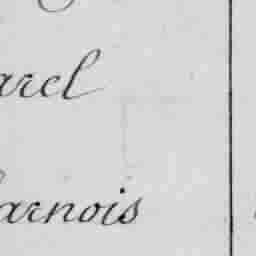 arel
arnois